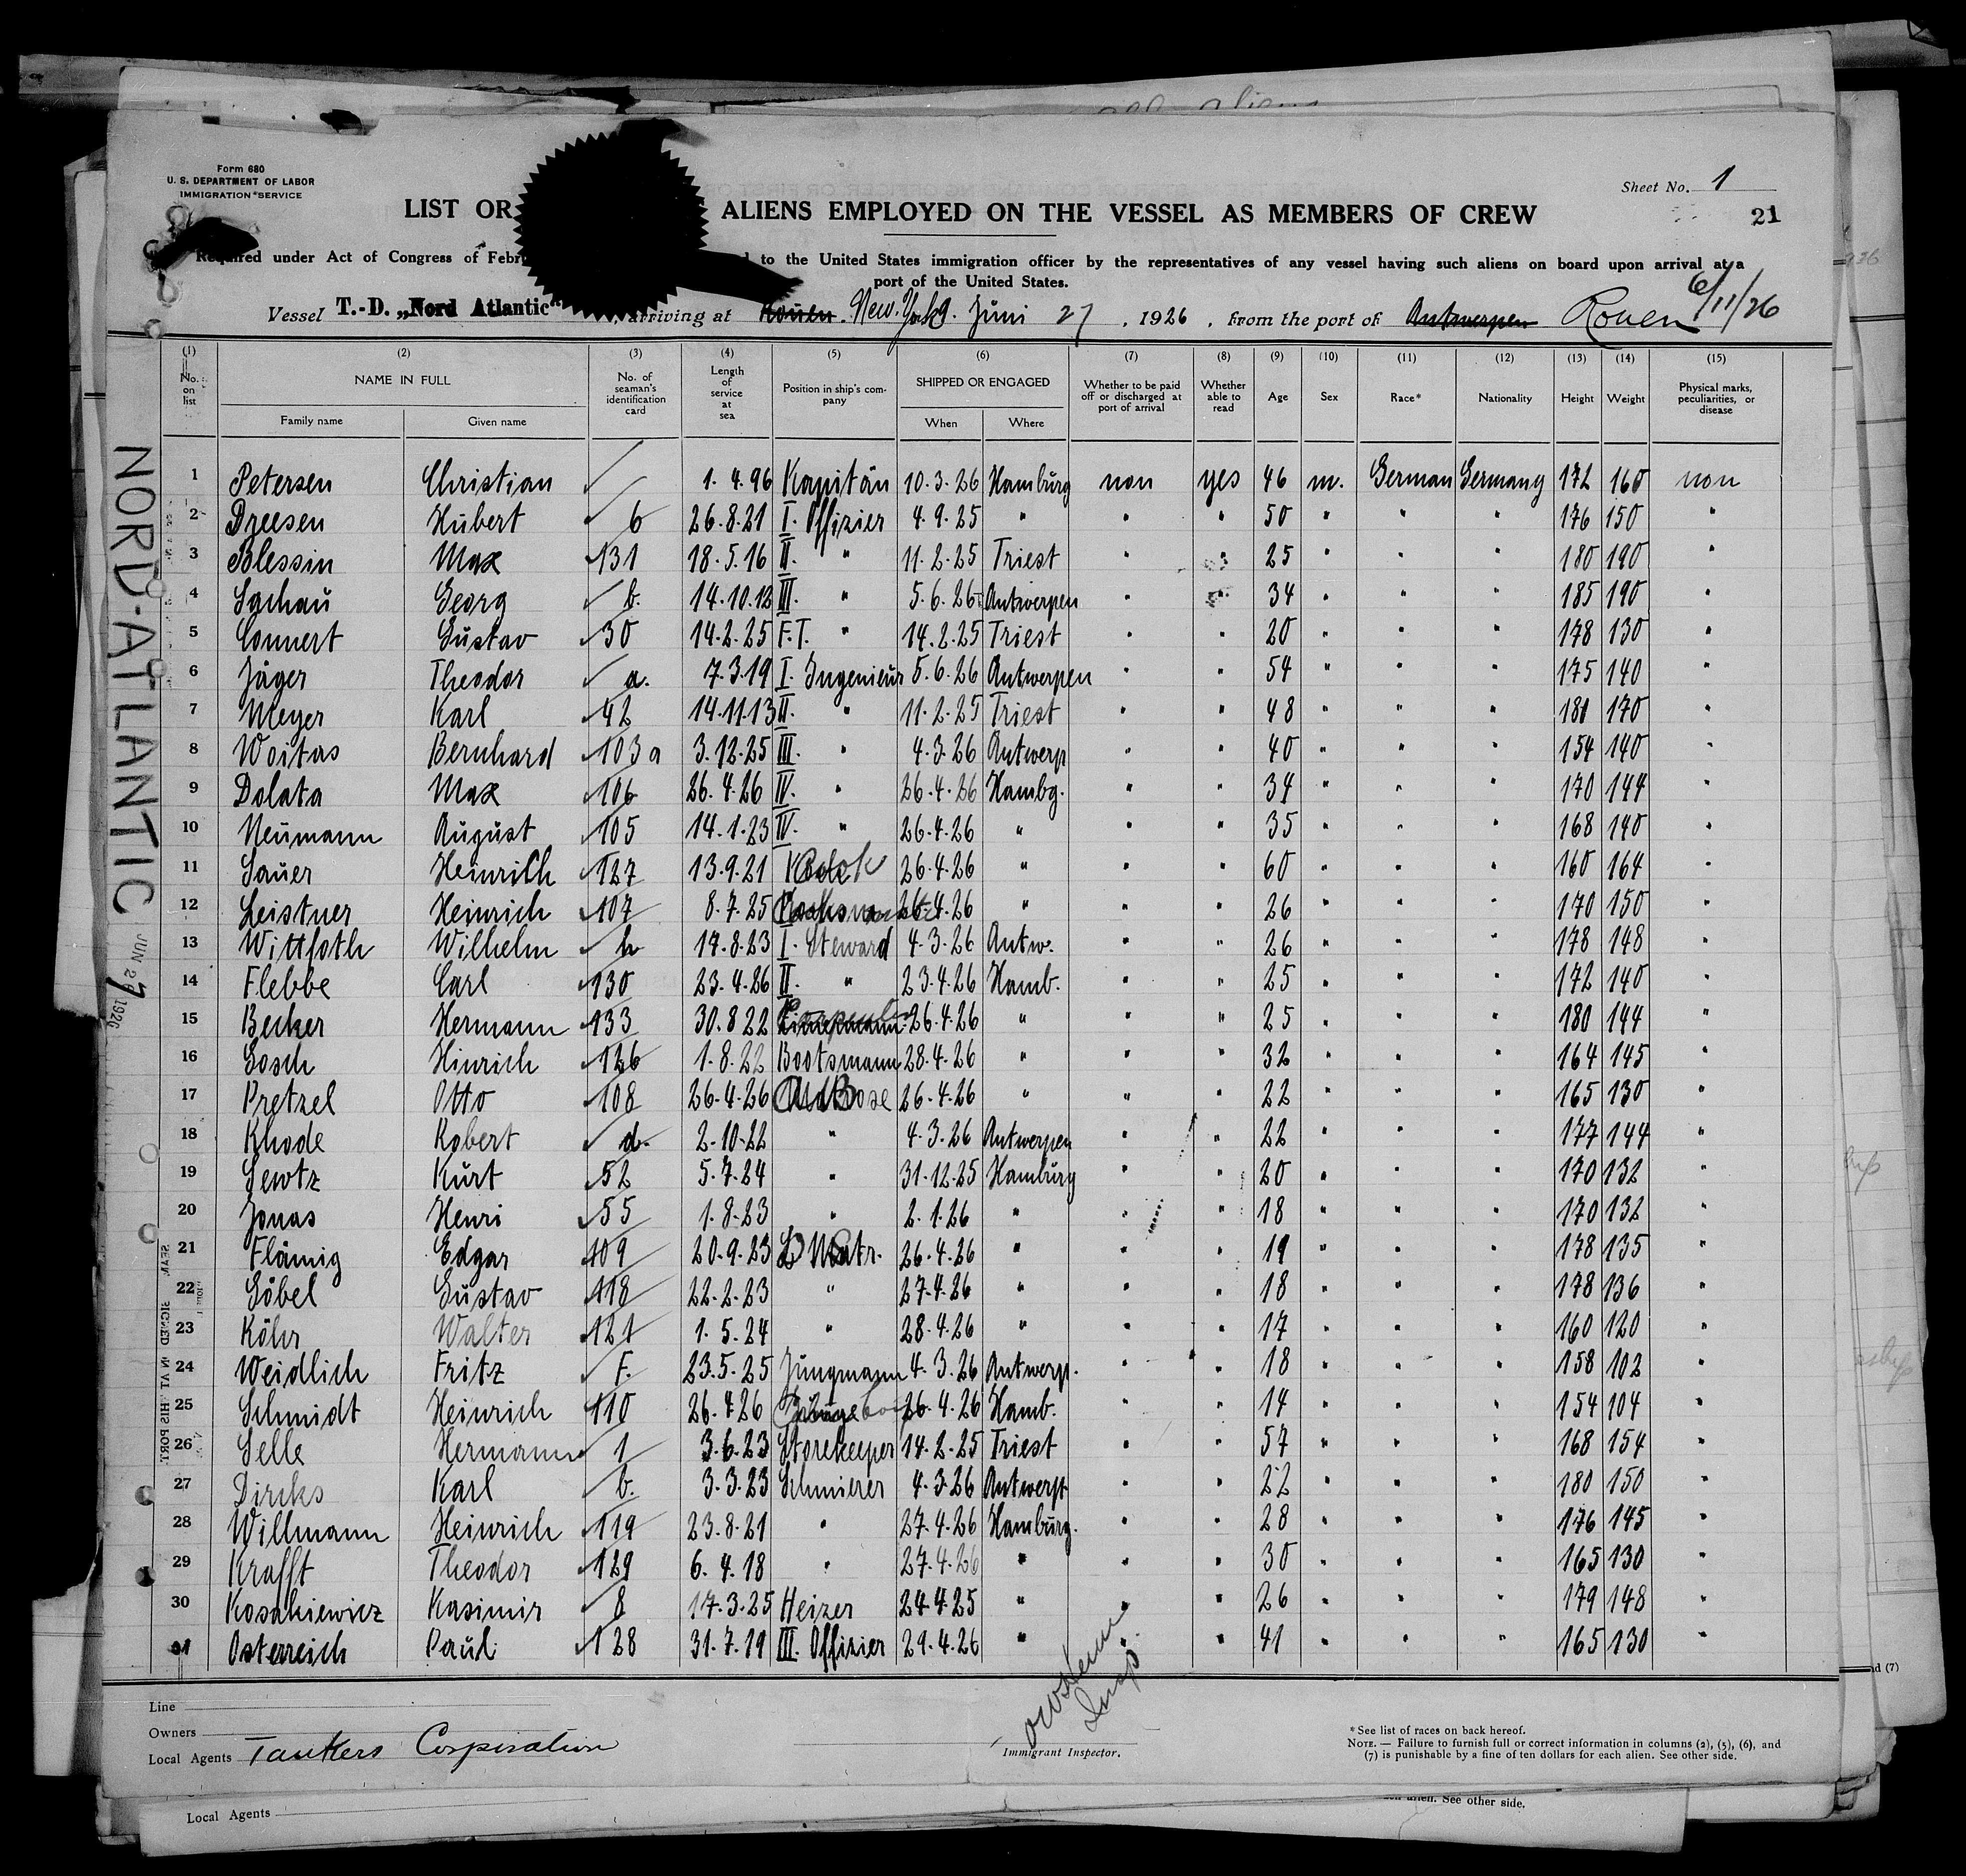 Form 680
U. S. DEPARTMENT OF LABOR
IMMIGRATION SERVICE
Sheet No. 1
21
LIST OR ALIENS EMPLOYED ON THE VESSEL AS MEMBERS OF CREW
Required under Act of Congress of Febr to the United States immigration officer by the representatives of any vessel having such aliens on board upon arrival at a
port of the United States.
Vessel T.-D. „Nord Atlantic“ , arriving at Rouen New York. Juni 27 , 1926 , from the port of Antwerpen Rouen 6/11/26
(1) (2) (3) (4) (5) (6) (7) (8) (9) (10) (11) (12) (13) (14) (15)
No. on list NAME IN FULL Family name Given name No. of seaman's identification card Length of service at sea Position in ship's company SHIPPED OR ENGAGED When Where Whether to be paid off or discharged at port of arrival Whether able to read Age Sex Race* Nationality Height Weight Physical marks, peculiarities, or disease
1 Petersen Christian 1.4.96 Kapitän 10.3.26 Hamburg non yes 46 m. German Germany 172 160 non
2 Dreesen Hubert 6 26.8.21 I. Offizier 4.9.25 " " " 50 " " " 176 150 "
3 Blessin Max 131 18.5.16 II. " 11.2.25 Triest " " 25 " " " 180 190 "
4 Sachau Georg b. 14.10.12 III. " 5.6.26 Antwerpen " " 34 " " " 185 190 "
5 Connert Gustav 30 14.2.25 F.T. " 14.2.25 Triest " " 20 " " " 178 130 "
6 Jäger Theodor a. 7.3.19 I. Ingenieur 5.6.26 Antwerpen " " 54 " " " 175 140 "
7 Meyer Karl 42 14.11.13 II. " 11.2.25 Triest " " 48 " " " 181 170 "
8 Woitas Bernhard 103a 3.12.25 III. " 4.3.26 Antwerp " " 40 " " " 154 140 "
9 Dolata Max 106 26.4.26 IV. " 26.4.26 Hambg. " " 34 " " " 170 144 "
10 Neumann August 105 14.1.23 IV. " 26.4.26 " " " 35 " " " 168 140 "
11 Sauer Heinrich 127 13.9.21 26.4.26 " " " 60 " " " 160 164 "
12 Leistner Heinrich 107 8.7.25 26.4.26 " " " 26 " " " 170 150 "
13 Wittfoth Wilhelm h 17.8.23 I. Steward 4.3.26 Antw. " " 26 " " " 178 148 "
14 Flebbe Carl 130 23.4.26 II. " 23.4.26 Hamb. " " 25 " " " 172 140 "
15 Becker Hermann 133 30.8.22 26.4.26 " " " 25 " " " 180 144 "
16 Gosch Hinrich 126 1.8.22 Bootsmann 28.4.26 " " " 32 " " " 164 145 "
17 Pretzel Otto 108 26.4.26 26.4.26 " " " 22 " " " 165 130 "
18 Rhode Robert d. 2.10.22 " 4.3.26 Antwerpen " " 22 " " " 177 144 "
19 Sewtz Kurt 52 5.7.24 " 31.12.25 Hamburg " " 20 " " " 170 132 "
20 Jonas Henri 55 1.8.23 " 2.1.26 " " " 18 " " " 170 132 "
21 Flämig Edgar 109 20.9.23 Matr. 26.4.26 " " " 19 " " " 178 135 "
22 Göbel Gustav 118 22.2.23 " 27.4.26 " " " 18 " " " 178 136 "
23 Köhr Walter 121 1.5.24 " 28.4.26 " " " 17 " " " 160 120 "
24 Weidlich Fritz F. 23.5.25 Jungmann 4.3.26 Antwerp. " " 18 " " " 158 102 "
25 Schmidt Heinrich 110 26.4.26 26.4.26 Hamb. " " 14 " " " 154 104 "
26 Selle Hermann 1 3.6.23 Storekeeper 14.2.25 Triest " " 57 " " " 168 154 "
27 Dircks Karl b. 3.3.23 Schmierer 4.3.26 Antwerp " " 22 " " " 180 150 "
28 Willmann Heinrich 119 23.8.21 " 27.4.26 Hamburg. " " 28 " " " 176 145 "
29 Krafft Theodor 129 6.4.18 " 27.4.26 " " " 30 " " " 165 130 "
30 Kosakiewicz Kasimir 8 17.3.25 Heizer 24.4.25 " " " 26 " " " 179 148 "
31 Osterreich Paul 128 31.7.19 III. Offizier 29.4.26 " " " 41 " " " 165 130 "
NORD-ATLANTIC
JUN 27 1926
Line
Owners
Local Agents Tankers Corporation
Insp
Immigrant Inspector.
* See list of races on back hereof.
NOTE. — Failure to furnish full or correct information in columns (2), (5), (6), and
(7) is punishable by a fine of ten dollars for each alien. See other side.
Local Agents
alien. See other side.